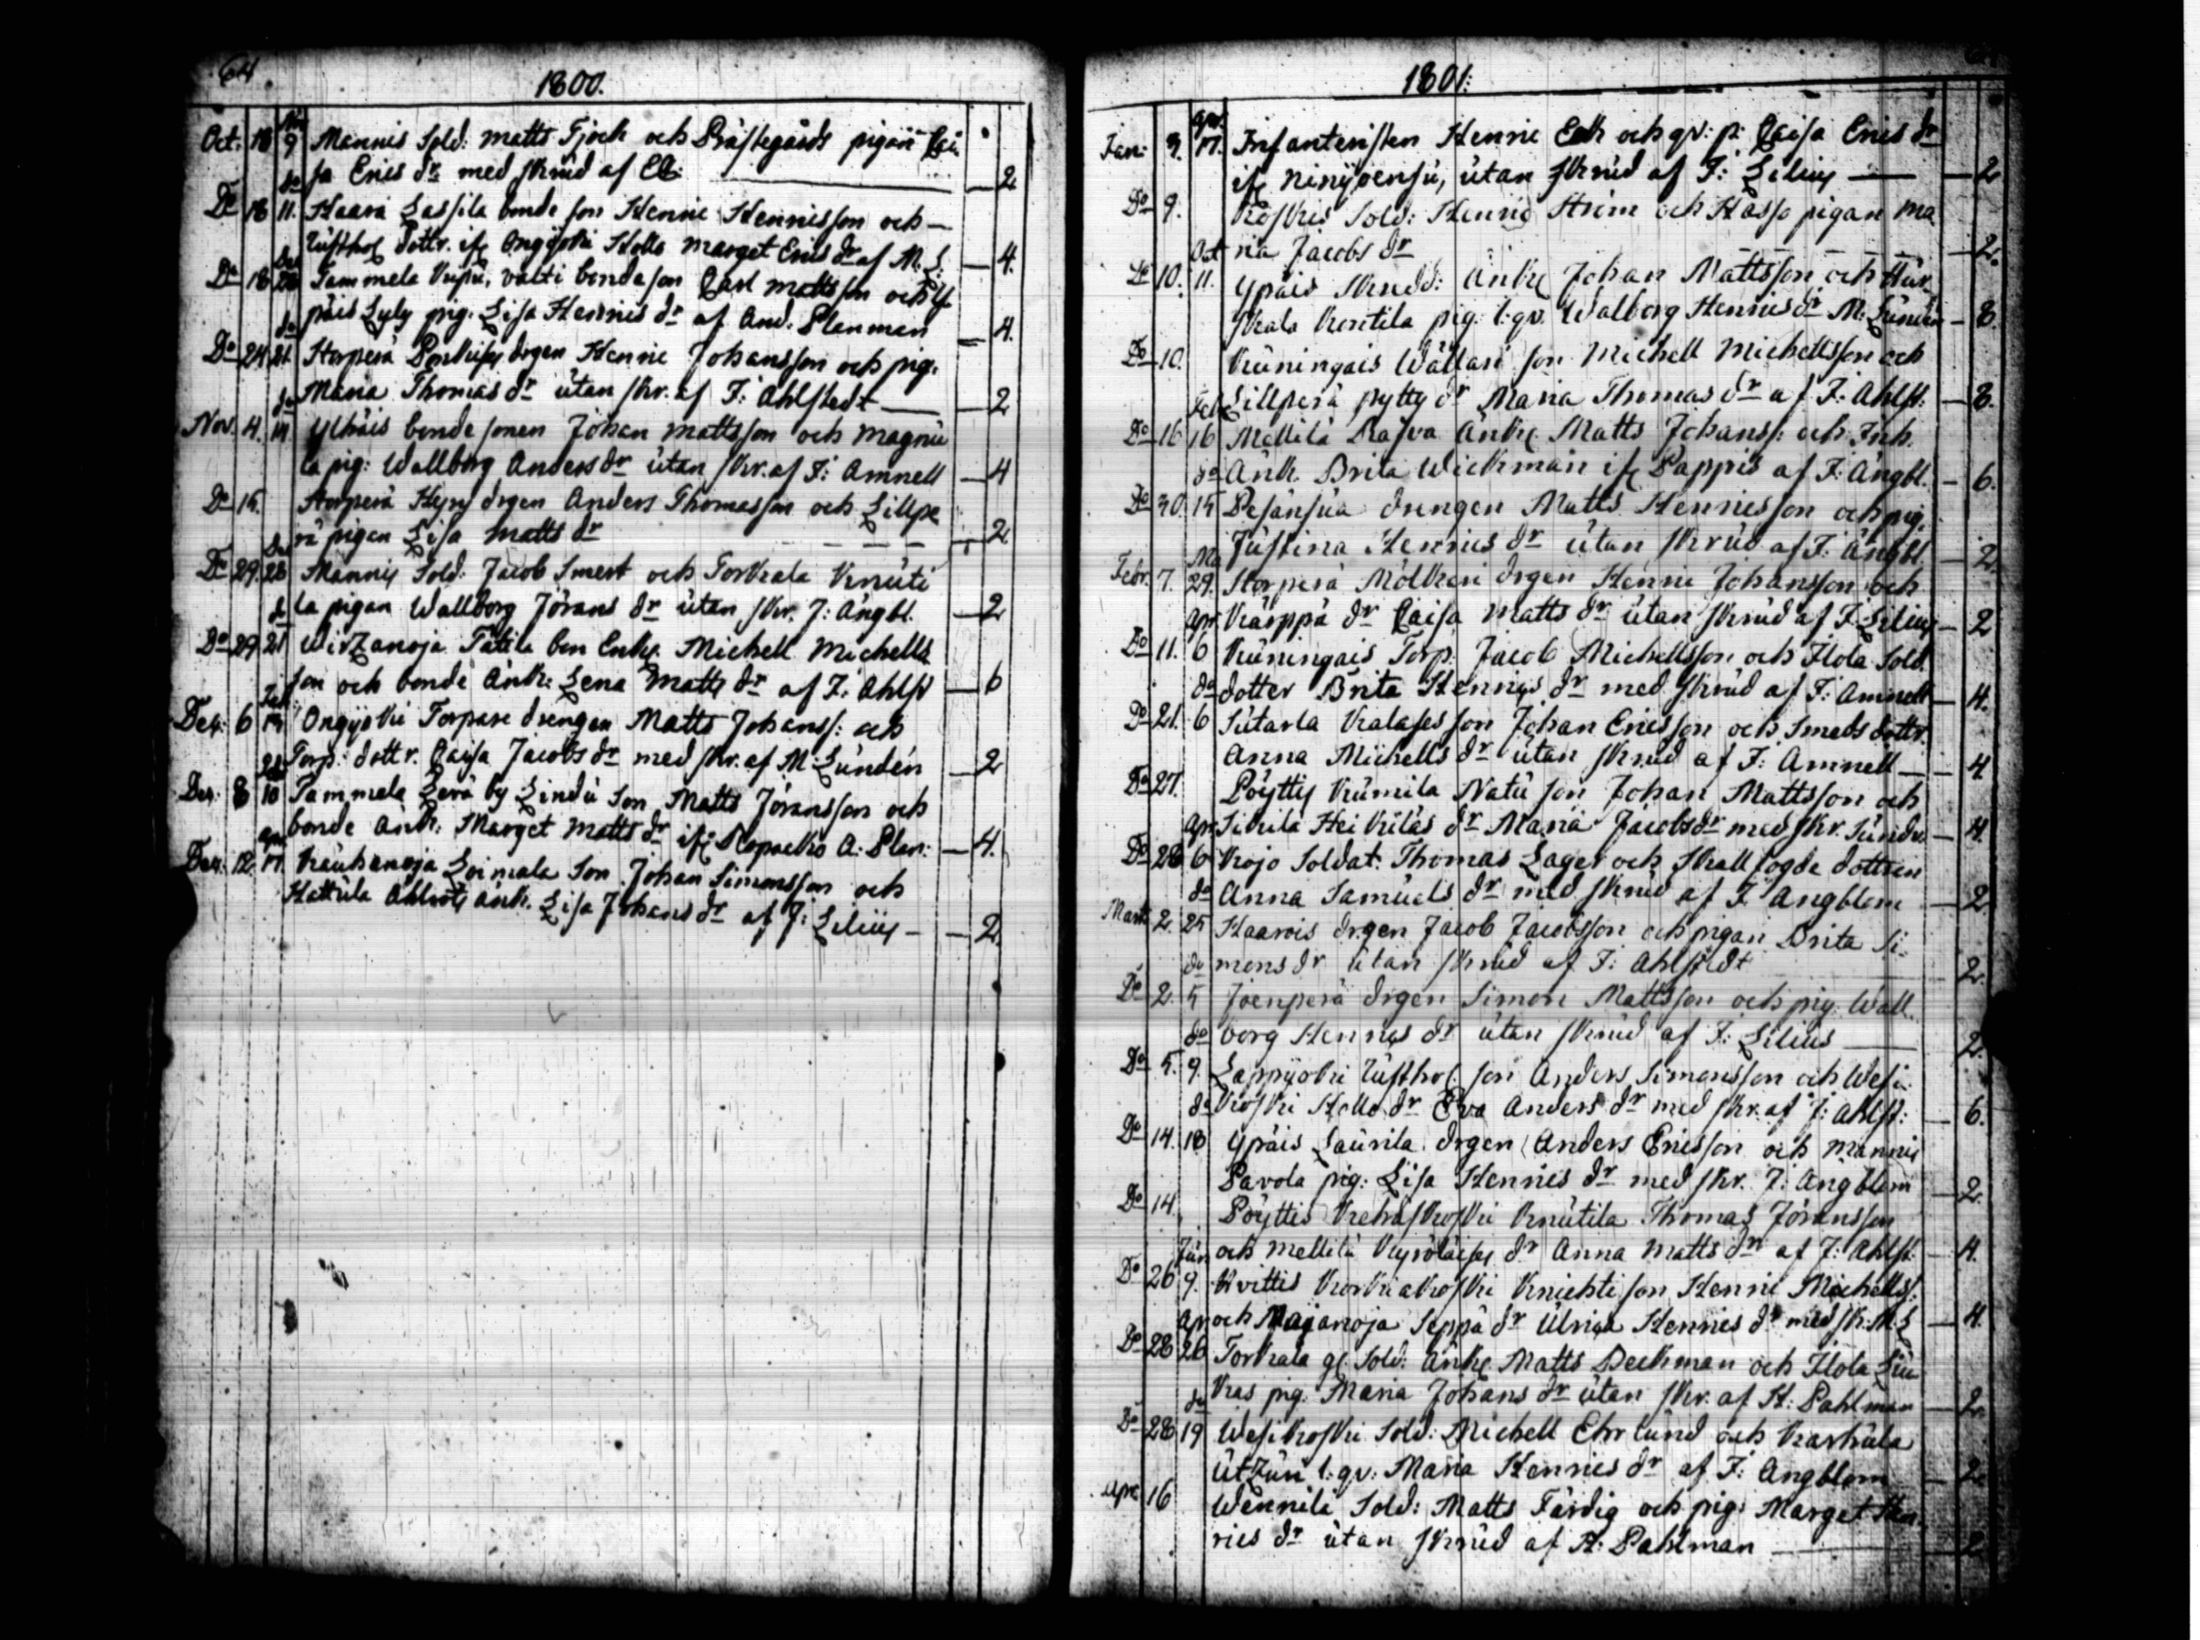 64
1800.
Oct. 18 9 Mannis Sold: Matts Tjock och Prästegårds pigan Cai
sa Erics dr med skrud af
Do 18 11. Kaara Lassila bonde son Henric Henricsson och
Rusthol dottr. ifr. Ongijoki Hollo Marget Erics dr af M. L: 4.
Do 18 28 Tammela bonda son Carl Mattsson och Y
päis Lyly pig. Lisa Henrics dr af And. Planman 4.
Do 24 21. Storperä drgen Henric Johansson och pig.
Maria Thomas dr utan skr. af F: Ahlstedt 2
Nov. 4. 14 Ylhäis bonde sonen Johan Mattsson och Magnu
la pig: Wallborg Anders dr utan skr. af F: Amnell 4
Do 15. Storperä drgen Anders Thomasson och Lillpe
rä pigan Lisa Matts dr 2
Do 29. 28 Mannis Sold: Jacob Smert och Torkala Knuti
la pigan Wallborg Jörans dr utan skr. F: Ängbl. 2
Do 29 21 Wirzanoja Tatila bon Enkl. Michell Michells
son och bonde Änk: Lena Matts dr af F: Ahlst 6
Dec. 6 Ongijoki Torpare drengen Matts Johanss: och
Torp: dottr. Caisa Jacobs dr med skr. af M: Lundén 2
Dec. 8 10 Tammela Lerä by Lindu Son Matts Jöransson och
bonde Änk: Marget Matts dr ifr A: Plan: 4.
Dec. 12. 17. Raukanoja Loimala Son Johan Simonsson och
Kattula Änk. Lisa Johans dr af F: Lilius 2.
1801:
Jan: 3. 17. Infanteristen Henric Eek och qv: p: Caisa Erics dr
ifr Ninijoensu, utan skrud af F: Lilius 2
Do 9. Koskis Sold: Henric Ström och Haso pigan Ma
ria Jacobs dr 2.
Do 10. 11. Ypäis Änkl Johan Mattsson och Hur
skala Kontila pig. l: qv. Walborg Henrics dr M. Lundén 8.
Do 10. Kuningais Wällari son Michell Michellsson och
Lillperä pytty dr Maria Thomas dr af F: Ahlst: 8.
Do 16 16 Mellilä Rasva Änkl Matts Johanss: och Inh.
Änk. Brita Wickman ifr Pappis af F: Ängbl. 6.
Do 30. 15 Pesänsuu drengen Matts Henricsson och pig.
Justina Henrics dr utan skrud af F: Ängbl. 2.
Febr. 7. 29. Storperä Mölkeri drgen Henric Johansson och
Kärppä dr Caisa Matts dr utan skrud af F. Lilius 2
Do 11. 6 Kuningais Torp. Jacob Michellsson och Ilola Sold.
dotter Brita Henrics dr med skrud af F: Amnell 4.
Do 21. 6 Sutarla Kalases son Johan Ericsson och Smeds dottr.
Anna Michells dr utan skrud af F: Amnell 4
Do 27. Pöyttis Kumila Natu son Johan Mattsson och
Sikila Heikilas dr Maria Jacobs dr med skr. Lunden 4.
Do 28 6 Kojo Soldat: Thomas Lager och Skallfogde dottren
Anna Samuels dr med skrud af F. Ängblom 2
Marti 2. 25 Haarois drgen Jacob Jacobsson och pigan Brita Si-
mons dr utan skrud af F: Ahlstedt 2.
Do 2. 5 Joenperä drgen Simon Mattsson och pig. Wall
borg Henrics dr utan skrud af F: Lilius 2.
Do 5. 9. Lappijoki Rusthol. son Anders Simonsson och Wesi
koski Hollo dr Eva Anders dr med skr. af F: Ahlst: 6.
Do 14. 18 Ypäis Laurila drgen Anders Ericsson och Mannis
Pavola pig: Lisa Henrics dr med skr. F: Ängblom 2.
Do 14. Pöyttis Knutila Thomas Jöransson
och Mellilä dr Anna Matts dr af F: Ahlst. 4.
Do 26 9. Kvittis Korkiakoski Knichti son Henric Michells:
och Majanoja Seppä dr Ulrica Henrics dr med sk: M: L 4.
Do 28 26 Torkala gl. Sold: Änkl Matts Beckman och Ilola Luu
kas pig. Maria Johans dr utan skr. af H: Pahlman 2.
Do 28 19 Wesikoski Sold: Michell Ehrlund och Karhula
l: qv: Maria Henrics dr af F: Ängblom 2.
Apr. 16 Wennilä Sold: Matts Färdig och pig: Marget Hen-
rics dr utan skrud af H: Pahlman 2